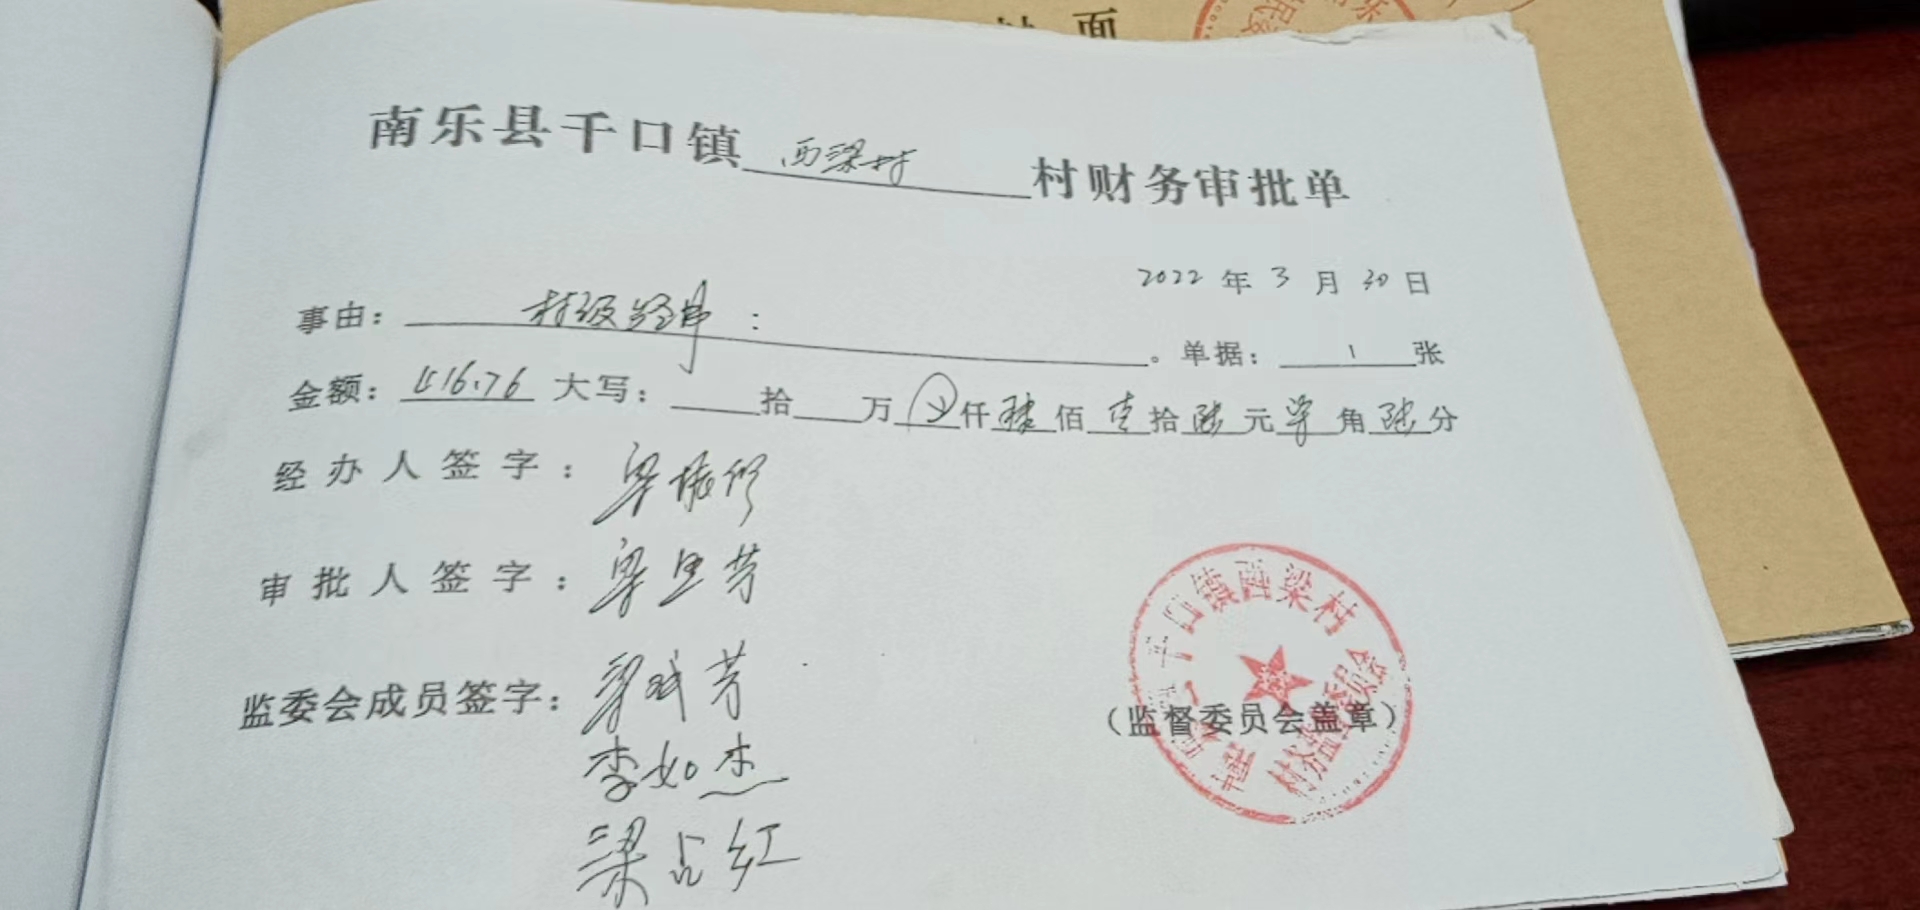 面
南乐县千口镇 西梁村 村财务审批单
2022 年 3 月 30 日
事由： 村级经费 ： 。单据： 1 张
金额： 616.76 大写： 拾 万 仟 陆 佰 壹 拾 陆 元 角 陆 分
经办人签字： 梁
审批人签字： 梁 芳
监委会成员签字： 梁 芳
李如杰
梁占红
（监督委员会盖章）
千口镇西梁村
村务监督委员会